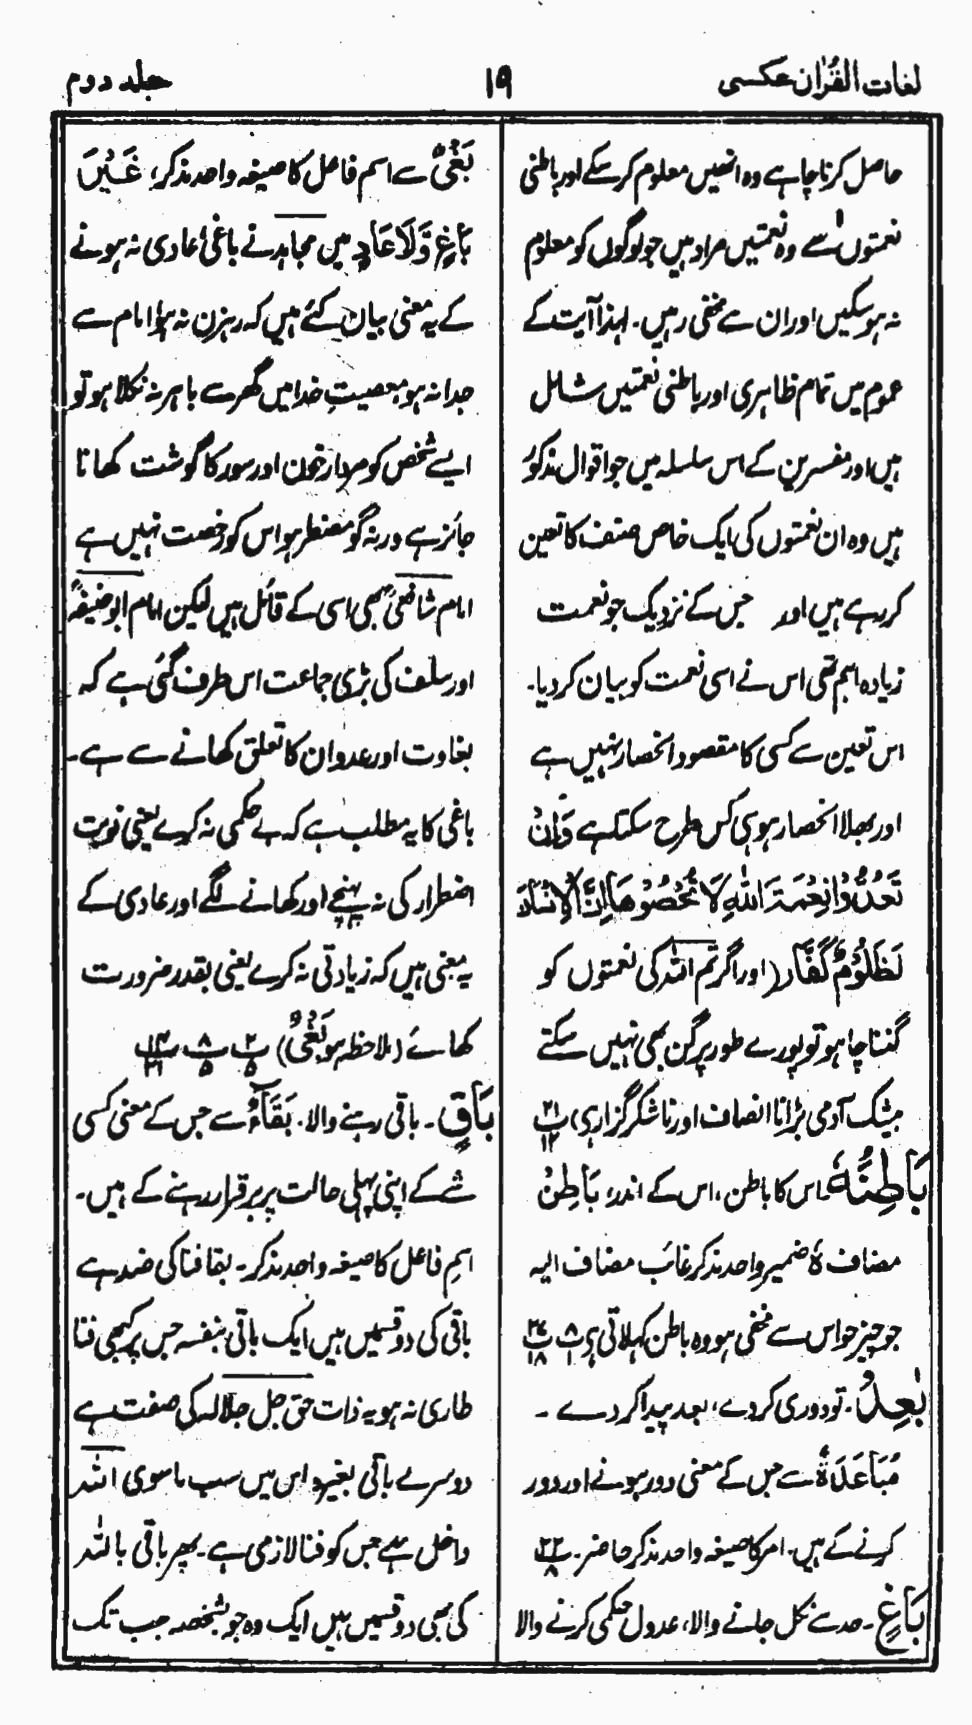 لغات القرآن عکسی
۱۹
جلد دوم
حاصل کرنا چاہے وہ انھیں معلوم کر سکے اور باطنی
نعمتوں سے وہ نعمتیں مراد ہیں جو لوگوں کو معلوم
نہ ہو سکیں اور ان سے مخفی رہیں۔ لہذا آیت کے
عموم میں تمام ظاہری اور باطنی نعمتیں شامل
ہیں اور مفسرین کے اس سلسلہ میں جو اقوال مذکور
ہیں وہ ان نعمتوں کی ایک خاص صنف کا تعین
کر رہے ہیں اور جس کے نزدیک جو نعمت
زیادہ اہم تھی اس نے اسی نعمت کو بیان کر دیا۔
اس تعین سے کسی کا مقصود انحصار نہیں ہے
اور بھلا انحصار ہو ہی کس طرح سکتا ہے وَاِنْ
تَعُدُّوْا نِعْمَةَ اللّٰهِ لَا تُحْصُوْهَا اِنَّ الْاِنْسَانَ
لَظَلُوْمٌ كَفَّار (اور اگر تم اللہ کی نعمتوں کو
گننا چاہو تو پورے طور پر گن بھی نہیں سکتے
بیشک آدمی بڑا نا انصاف اور ناشکر گزار ہے) پ ۲۱ ۱۲
بَاطِنُهٗ۔ اس کا باطن، اس کے اندر، بَاطِنُ
مضاف ہٗ ضمیر واحد مذکر غائب مضاف الیہ
جو چیز حواس سے مخفی ہو وہ باطن کہلاتی ہے پ ۸ ۱ پ ۲۷ ۱۸
بٰعِدْ۔ تو دوری کر دے، بعد پیدا کر دے۔
مُبَاعَدَةٌ سے جس کے معنی دور ہونے اور دور
کرنے کے ہیں۔ امر کا صیغہ واحد مذکر حاضر۔ پ ۲۲ ۸
بَاغٍ۔ حد سے نکل جانے والا، عدول حکمی کرنے والا
بَغْیٌ سے اسم فاعل کا صیغہ واحد مذکر، غَیْرَ
بَاغٍ وَّلَا عَادٍ میں مجاہد نے باغی عادی نہ ہونے
کے یہ معنی بیان کئے ہیں کہ رہزن نہ ہو امام سے
جدا نہ ہو معصیتِ خدا میں گھر سے باہر نہ نکلا ہو تو
ایسے شخص کو مردار خون اور سور کا گوشت کھانا
جائز ہے ورنہ گو مضطر ہو اس کو رخصت نہیں ہے
امام شافعیؒ بھی اسی کے قائل ہیں لیکن امام ابوحنیفہؒ
اور سلف کی بڑی جماعت اس طرف گئی ہے کہ
بغاوت اور عدوان کا تعلق کھانے سے ہے۔
باغی کا یہ مطلب ہے کہ بے حکمی نہ کرے یعنی نوبت
اضطرار کی نہ پہنچے اور کھانے لگے اور عادی کے
یہ معنی ہیں کہ زیادتی نہ کرے یعنی بقدر ضرورت
کھائے (ملاحظہ ہو بَغْیٌ) پ ۲ ۵ پ ۸ ۵ پ ۱۴ ۲۱
بَاقٍ۔ باقی رہنے والا۔ بَقَاءٌ سے جس کے معنی کسی
شے کے اپنی پہلی حالت پر برقرار رہنے کے ہیں۔
اسم فاعل کا صیغہ واحد مذکر۔ بقا فنا کی ضد ہے
باقی کی دو قسمیں ہیں ایک باقی بنفسہ جس پر کبھی فنا
طاری نہ ہو یہ ذات حق جل جلالہ کی صفت ہے
دوسرے باقی بغیرہ اس میں سب ماسوی اللہ
داخل ہے جس کو فنا لازمی ہے۔ پھر باقی باللہ
کی بھی دو قسمیں ہیں ایک وہ جو بشخصہ جب تک